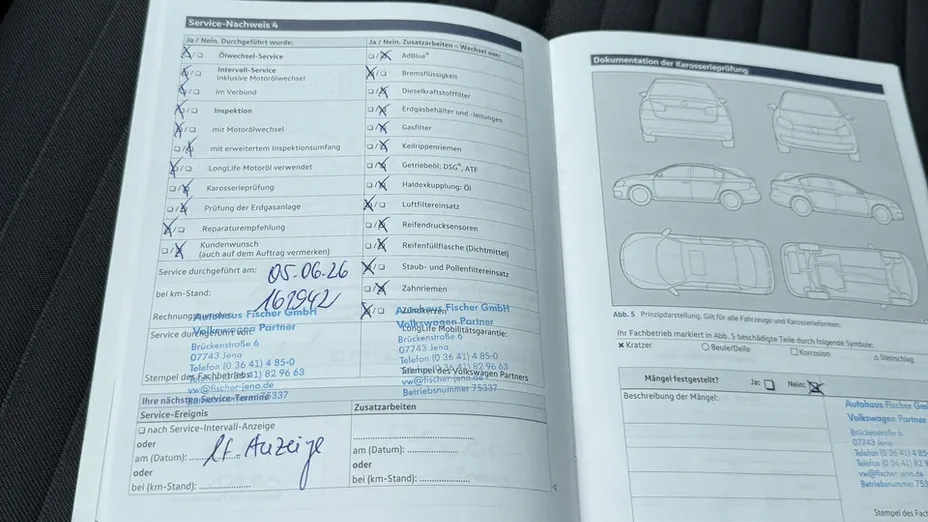 Service-Nachweis 4
Ja / Nein. Durchgeführt wurde:
Ölwechsel-Service
Intervall-Service
inklusive Motorölwechsel
im Verbund
Inspektion
mit Motorölwechsel
mit erweitertem Inspektionsumfang
LongLife Motoröl verwendet
Karosserieprüfung
Prüfung der Erdgasanlage
Reparaturempfehlung
Kundenwunsch
(auch auf dem Auftrag vermerken)
Service durchgeführt am: 05.06.26
bei km-Stand: 162942
Service durchgeführt von:
Autohaus Fischer GmbH
Volkswagen Partner
Brückenstraße 6
07743 Jena
Telefon (0 36 41) 4 85-0
41) 82 96 63
vw@fischer-jena.de
75337
Stempel des Fachbetriebs
Ja / Nein. Zusatzarbeiten – Wechsel von:
AdBlue®
Bremsflüssigkeit
Dieselkraftstofffilter
Erdgasbehälter und -leitungen
Gasfilter
Keilrippenriemen
Getriebeöl: DSG®, ATF
Haldexkupplung: Öl
Luftfiltereinsatz
Reifendrucksensoren
Reifenfüllflasche (Dichtmittel)
Staub- und Pollenfiltereinsatz
Zahnriemen
Zündkerzen
Autohaus Fischer GmbH
Volkswagen Partner
LongLife Mobilitätsgarantie:
Brückenstraße 6
07743 Jena
Telefon (0 36 41) 4 85-0
41) 82 96 63
Stempel des Volkswagen Partners
vw@fischer-jena.de
Betriebsnummer 75337
Ihre nächsten Service-Termine
Service-Ereignis
nach Service-Intervall-Anzeige
oder
am (Datum): lt. Anzeige
oder
bei (km-Stand):
Zusatzarbeiten
am (Datum):
oder
bei (km-Stand):
Dokumentation der Karosserieprüfung
Abb. 5 Prinzipdarstellung. Gilt für alle Fahrzeuge und Karosserieformen.
Ihr Fachbetrieb markiert in Abb. 5 beschädigte Teile durch folgende Symbole:
Kratzer
Beule/Delle
Korrosion
Steinschlag
Mängel festgestellt? Ja: Nein:
Beschreibung der Mängel:
Autohaus Fischer
Volkswagen Partner
Brückenstraße 6
07743 Jena
Telefon (0 36 41) 4 85
Telefax (0 36 41) 82 9
vw@fischer-jena.de
Betriebsnummer 753
Stempel des Fach